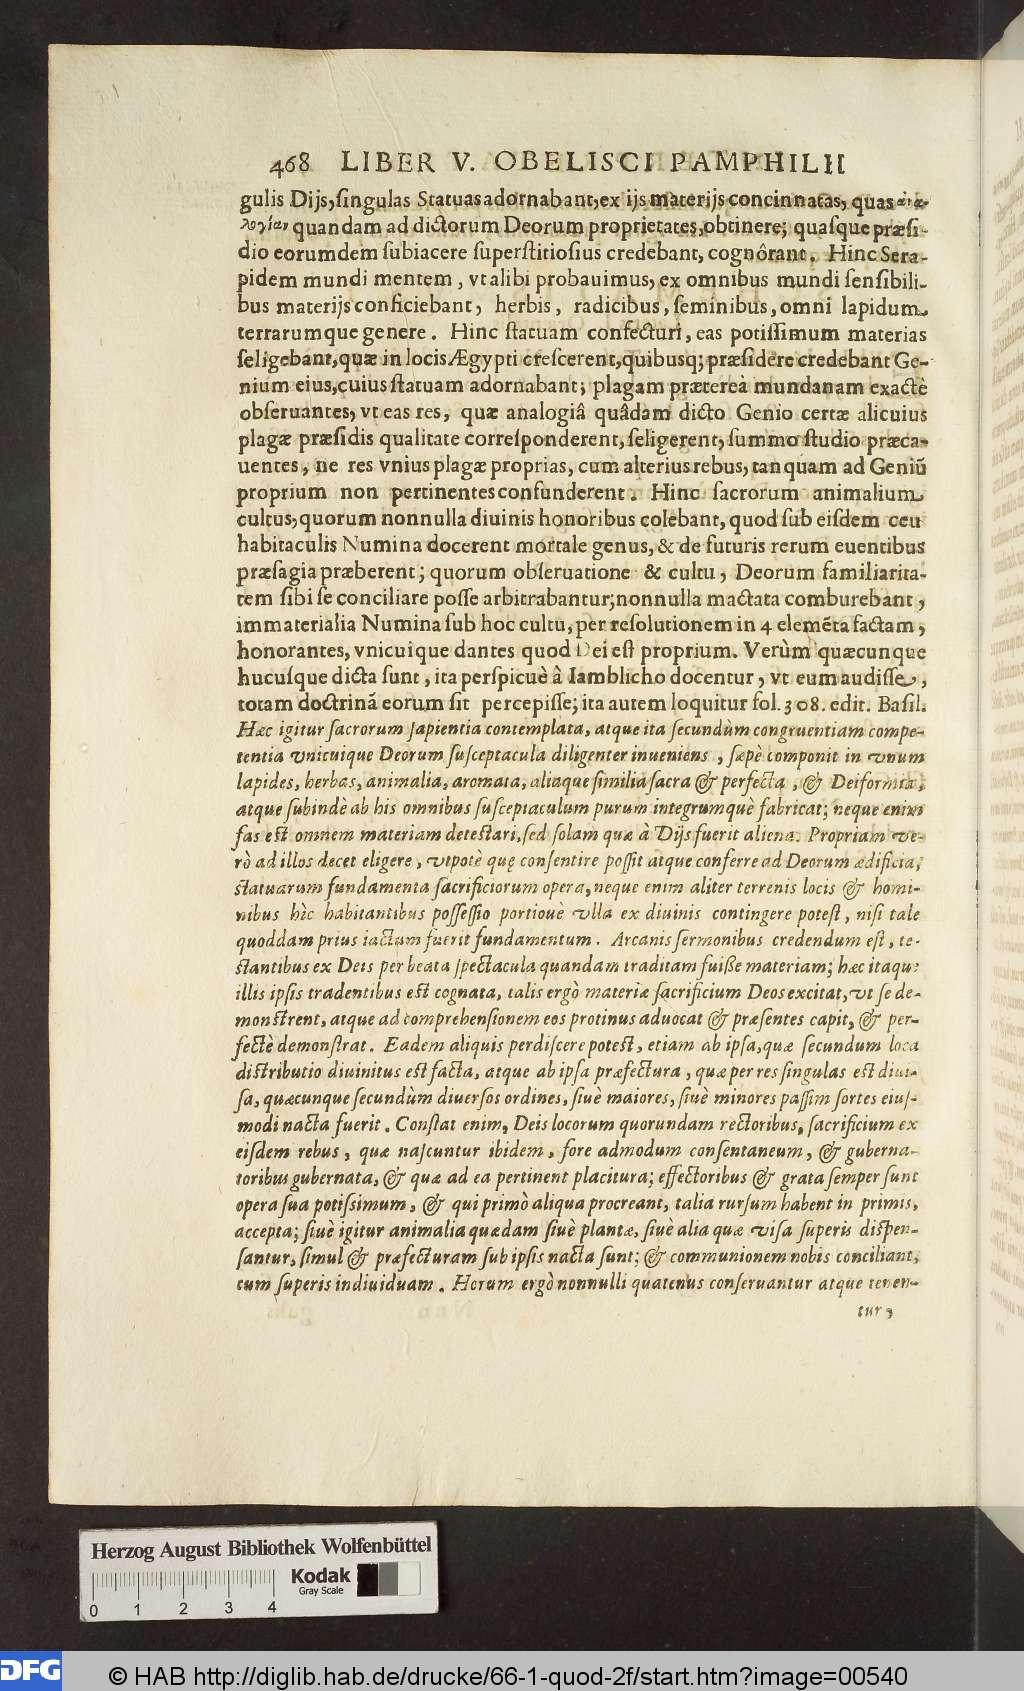 468 LIBER V. OBELISCI PAMPHILII
gulis Dijs, ſingulas Statuas adornabant, ex ijs materijs concinnatas, quas ἀνα-
λογίαν quandam ad dictorum Deorum proprietates, obtinere; quaſque præſi-
dio eorumdem ſubiacere ſuperſtitioſius credebant, cognôrant. Hinc Sera-
pidem mundi mentem, vt alibi probauimus, ex omnibus mundi ſenſibili-
bus materijs conficiebant, herbis, radicibus, ſeminibus, omni lapidum
terrarumque genere. Hinc ſtatuam confecturi, eas potiſſimum materias
ſeligebant, quæ in locis Ægypti creſcerent, quibusq; præſidere credebant Ge-
nium eius, cuius ſtatuam adornabant; plagam prætereà mundanam exactè
obſeruantes, vt eas res, quæ analogiâ quâdam dicto Genio certæ alicuius
plagæ præſidis qualitate correſponderent, ſeligerent, ſummo ſtudio præca-
uentes, ne res vnius plagæ proprias, cum alterius rebus, tanquam ad Geniũ
proprium non pertinentes confunderent. Hinc ſacrorum animalium
cultus, quorum nonnulla diuinis honoribus colebant, quod ſub eiſdem ceu
habitaculis Numina docerent mortale genus, & de futuris rerum euentibus
præſagia præberent; quorum obſeruatione & cultu, Deorum familiarita-
tem ſibi ſe conciliare poſſe arbitrabantur; nonnulla mactata comburebant,
immaterialia Numina ſub hoc cultu, per reſolutionem in 4 elemẽta factam,
honorantes, vnicuique dantes quod Dei eſt proprium. Verùm quæcunque
hucuſque dicta ſunt, ita perſpicuè â Iamblicho docentur, vt eum audiſſe,
totam doctrinã eorum ſit percepiſſe; ita autem loquitur fol. 308. edit. Baſil.
Hæc igitur ſacrorum ſapientia contemplata, atque ita ſecundùm congruentiam compe-
tentia vnicuique Deorum ſuſceptacula diligenter inueniens, ſæpè componit in vnum
lapides, herbas, animalia, aromata, aliaque ſimilia ſacra & perfecta, & Deiformia,
atque ſubindè ab his omnibus ſuſceptaculum purum integrumquè fabricat; neque enim
fas eſt omnem materiam deteſtari, ſed ſolam quæ à Dijs fuerit aliena. Propriam ve-
rò ad illos decet eligere, vtpotè quę conſentire poſſit atque conferre ad Deorum ædificia,
ſtatuarum fundamenta ſacrificiorum opera, neque enim aliter terrenis locis & homi-
nibus hìc habitantibus poſſeſſio portiouè vlla ex diuinis contingere poteſt, niſi tale
quoddam prius iactum fuerit fundamentum. Arcanis ſermonibus credendum eſt, te-
ſtantibus ex Deis per beata ſpectacula quandam traditam fuiße materiam; hæc itaque
illis ipſis tradentibus eſt cognata, talis ergò materiæ ſacrificium Deos excitat, vt ſe de-
monſtrent, atque ad comprehenſionem eos protinus aduocat & præſentes capit, & per-
fectè demonſtrat. Eadem aliquis perdiſcere poteſt, etiam ab ipſa, quæ ſecundum loca
diſtributio diuinitus eſt facta, atque ab ipſa præfectura, quæ per res ſingulas eſt diui-
ſa, quæcunque ſecundùm diuerſos ordines, ſiuè maiores, ſiuè minores paſſim ſortes eiuſ-
modi nacta fuerit. Conſtat enim, Deis locorum quorundam rectoribus, ſacrificium ex
eiſdem rebus, quæ naſcuntur ibidem, fore admodum conſentaneum, & guberna-
toribus gubernata, & quæ ad ea pertinent placitura; effectoribus & grata ſemper ſunt
opera ſua potiſsimum, & qui primò aliqua procreant, talia rurſum habent in primis,
accepta; ſiuè igitur animalia quædam ſiuè plantæ, ſiuè alia quæ viſa ſuperis diſpen-
ſantur, ſimul & præfecturam ſub ipſis nacta ſunt; & communionem nobis conciliant,
cum ſuperis indiuiduam. Horum ergò nonnulli quatenus conſeruantur atque tenen-
tur,
Herzog August Bibliothek Wolfenbüttel
Kodak
Gray Scale
0 1 2 3 4
DFG © HAB http://diglib.hab.de/drucke/66-1-quod-2f/start.htm?image=00540